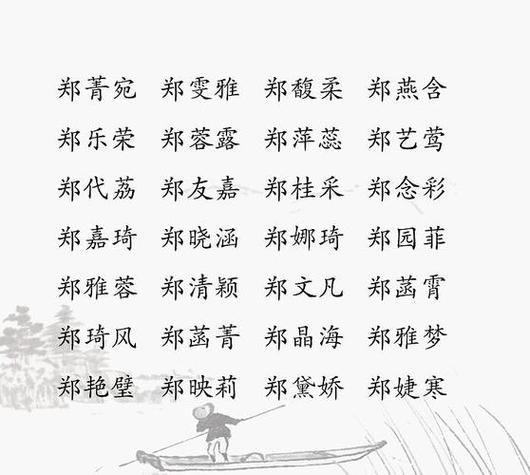 郑菁宛 郑雯雅 郑馥柔 郑燕含
郑乐荣 郑蓉露 郑萍蕊 郑艺莺
郑代荔 郑友嘉 郑桂采 郑念彩
郑嘉琦 郑晓涵 郑娜琦 郑园菲
郑雅蓉 郑清颖 郑文凡 郑菡霄
郑琦风 郑菡菁 郑晶海 郑雅梦
郑艳璧 郑映莉 郑黛娇 郑婕寒